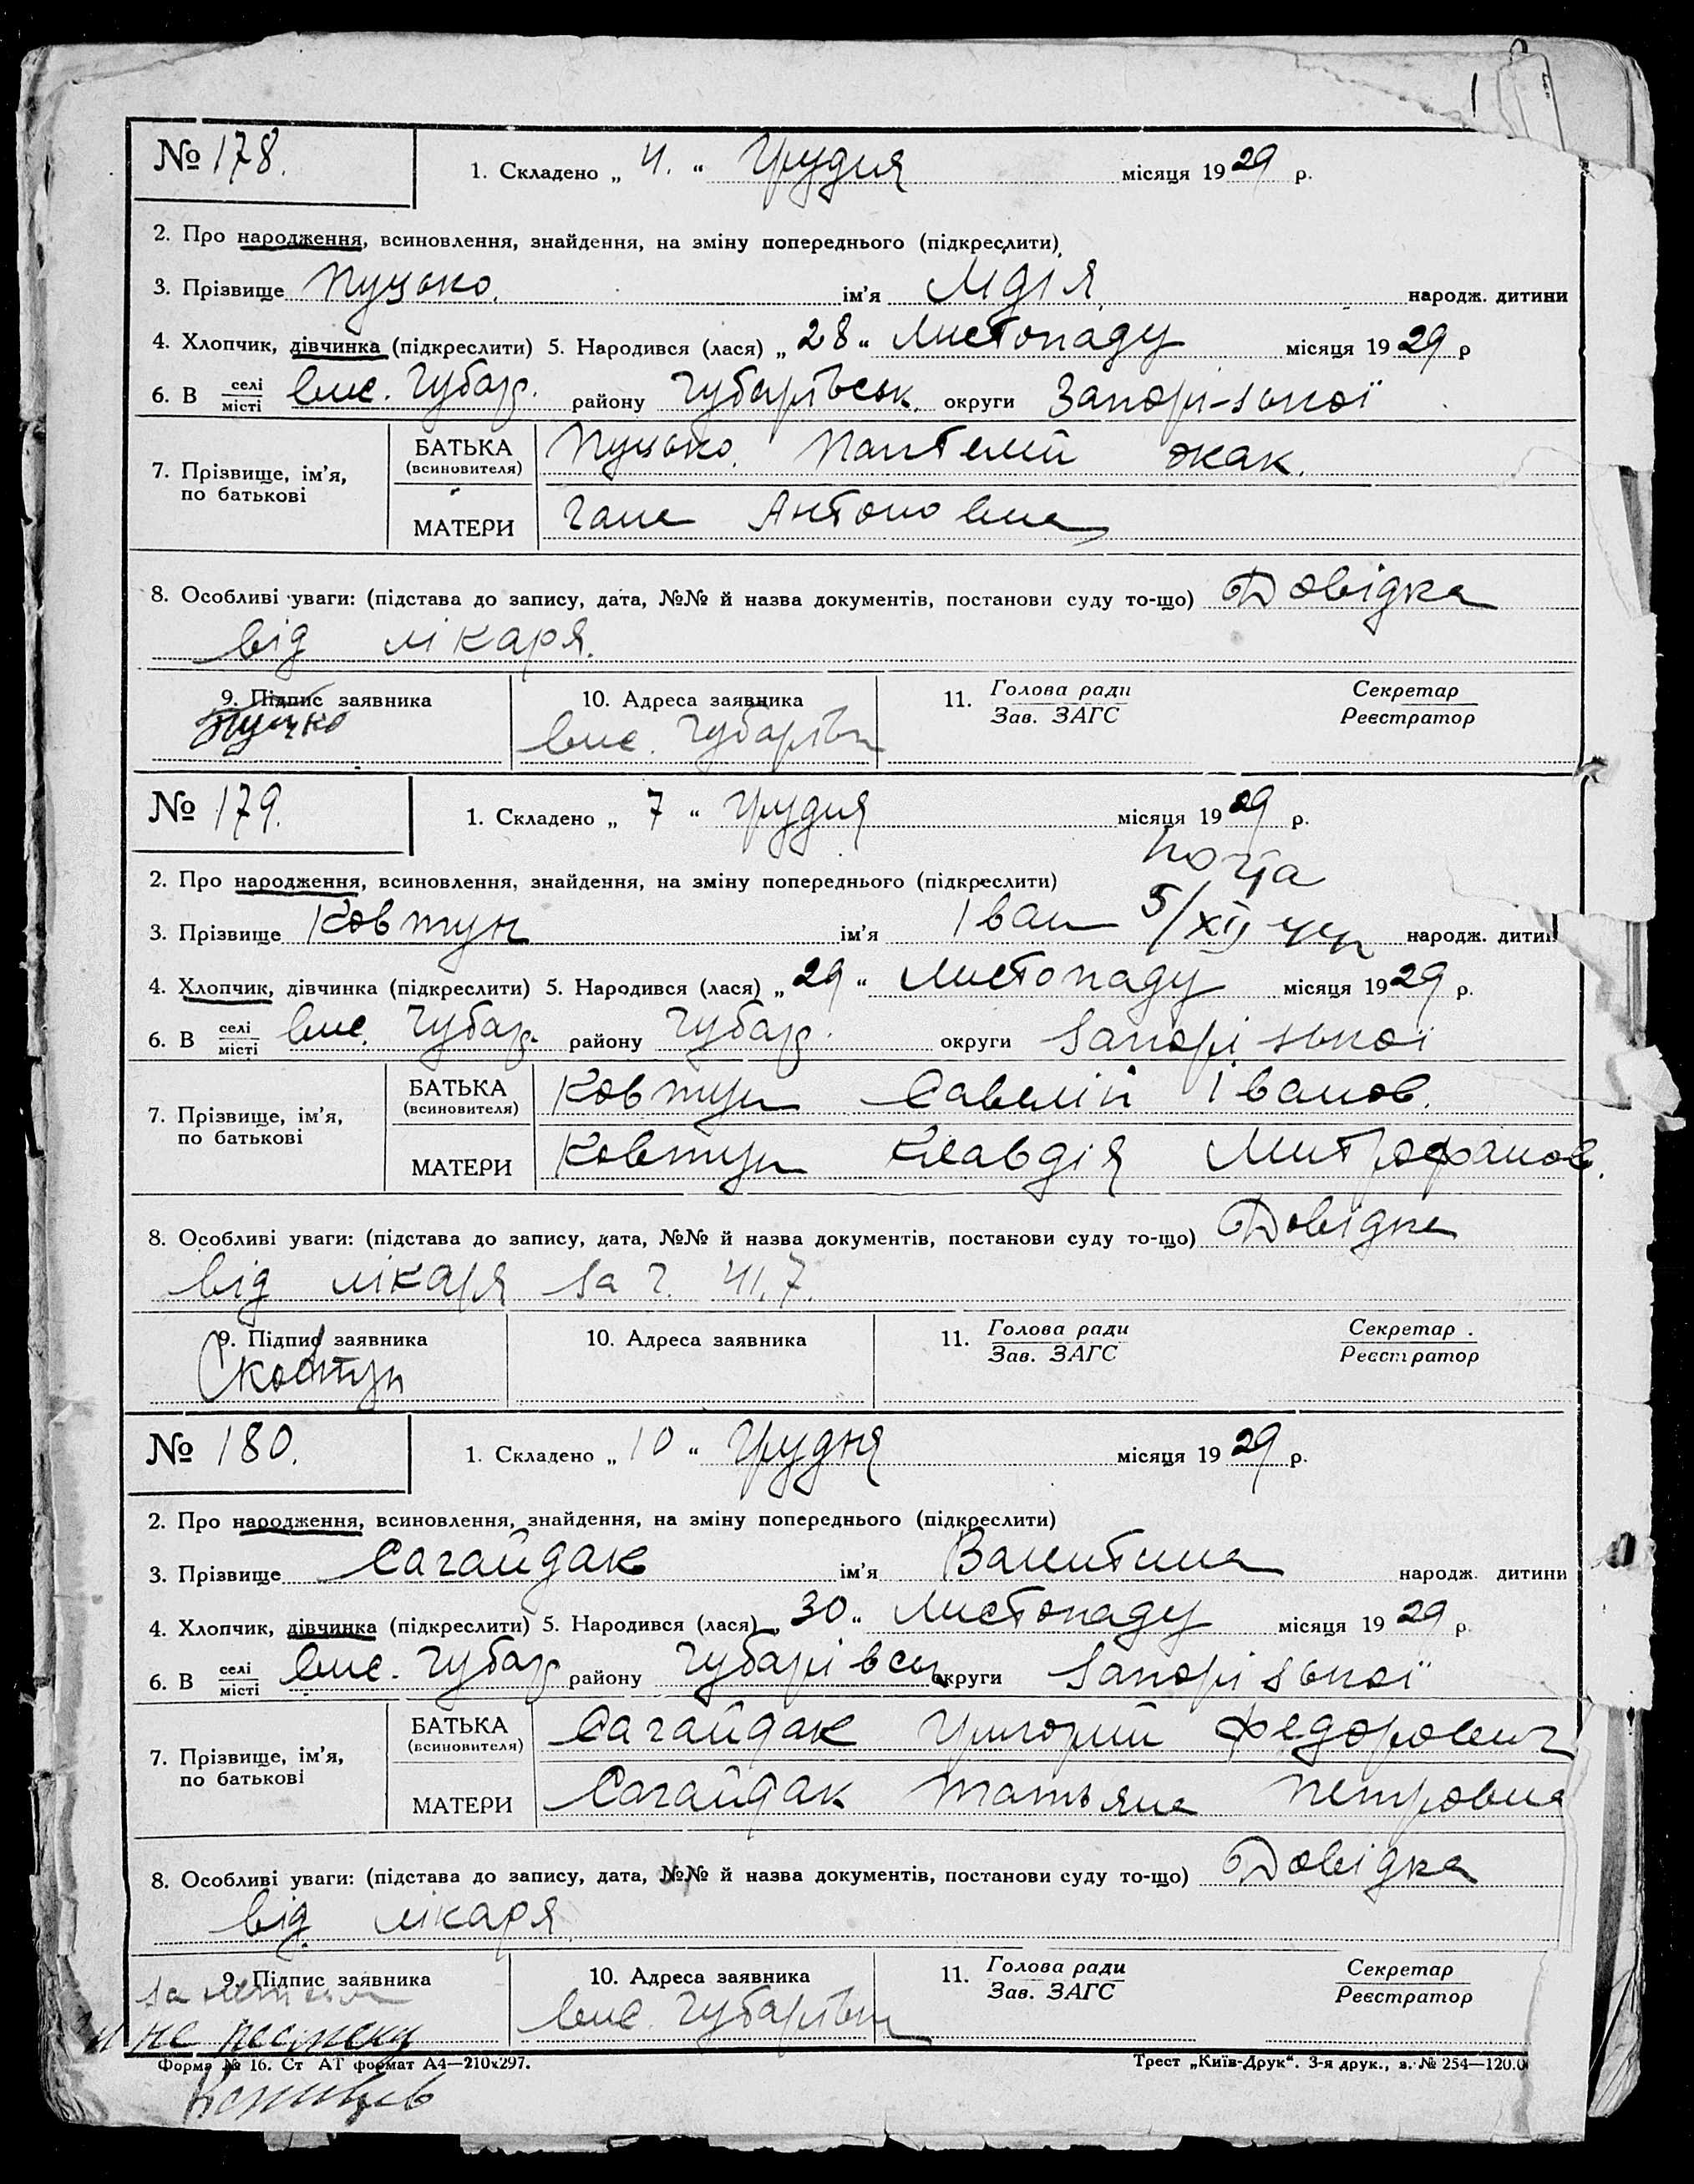 № 178. 1. Складено „ 4. “ Грудня місяця 1929 р.
2. Про народження, всиновлення, знайдення, на зміну попереднього (підкреслити)
3. Прізвище Пуцько. ім’я Лідія народж. дитини
4. Хлопчик, дівчинка (підкреслити) 5. Народився (лася) „ 28 “ Листопаду місяця 1929 р
6. В селі місті вис. Чубар. району Чубарівськ. округи Запорізької
7. Прізвище, ім’я, по батькові
БАТЬКА (всиновителя) Пуцько. Пантелей
МАТЕРИ Гана Антоновна
8. Особливі уваги: (підстава до запису, дата, №№ й назва документів, постанови суду то-що) Довідка
від лікаря.
9. Підпис заявника 10. Адреса заявника 11. Голова ради Зав. ЗАГС Секретар Реєстратор
Пуцько вис. Чубарівка
№ 179. 1. Складено „ 7 “ Грудня місяця 1929 р.
2. Про народження, всиновлення, знайдення, на зміну попереднього (підкреслити)
3. Прізвище Ковтун ім’я Іван 5/XII народж. дитин
4. Хлопчик, дівчинка (підкреслити) 5. Народився (лася) „ 29 “ Листопаду місяця 1929 р.
6. В селі місті вис. Чубар. району Чубар. округи Запорізької
7. Прізвище, ім’я, по батькові
БАТЬКА (всиновителя) Ковтун Савелій Іванов.
МАТЕРИ Ковтун Клавдія Митрофанов.
8. Особливі уваги: (підстава до запису, дата, №№ й назва документів, постанови суду то-що) Довідка
від лікаря за ч. 417.
9. Підпис заявника 10. Адреса заявника 11. Голова ради Зав. ЗАГС Секретар Реєстратор
Ковтун
№ 180. 1. Складено „ 10 “ Грудня місяця 1929 р.
2. Про народження, всиновлення, знайдення, на зміну попереднього (підкреслити)
3. Прізвище Сагайдак ім’я Валентина народж. дитини
4. Хлопчик, дівчинка (підкреслити) 5. Народився (лася) „ 30 “ Листопаду місяця 1929 р.
6. В селі місті вис. Чубар району Чубарівськ округи Запорізької
7. Прізвище, ім’я, по батькові
БАТЬКА (всиновителя) Сагайдак Григорий Федорович
МАТЕРИ Сагайдак Татьяна Петровна
8. Особливі уваги: (підстава до запису, дата, №№ й назва документів, постанови суду то-що) Довідка
від лікаря
9. Підпис заявника 10. Адреса заявника 11. Голова ради Зав. ЗАГС Секретар Реєстратор
вис. Чубарівка
Форма № 16. Ст АТ формат А4—210х297. Трест „Київ-Друк“. 3-я друк., з. № 254—120.0